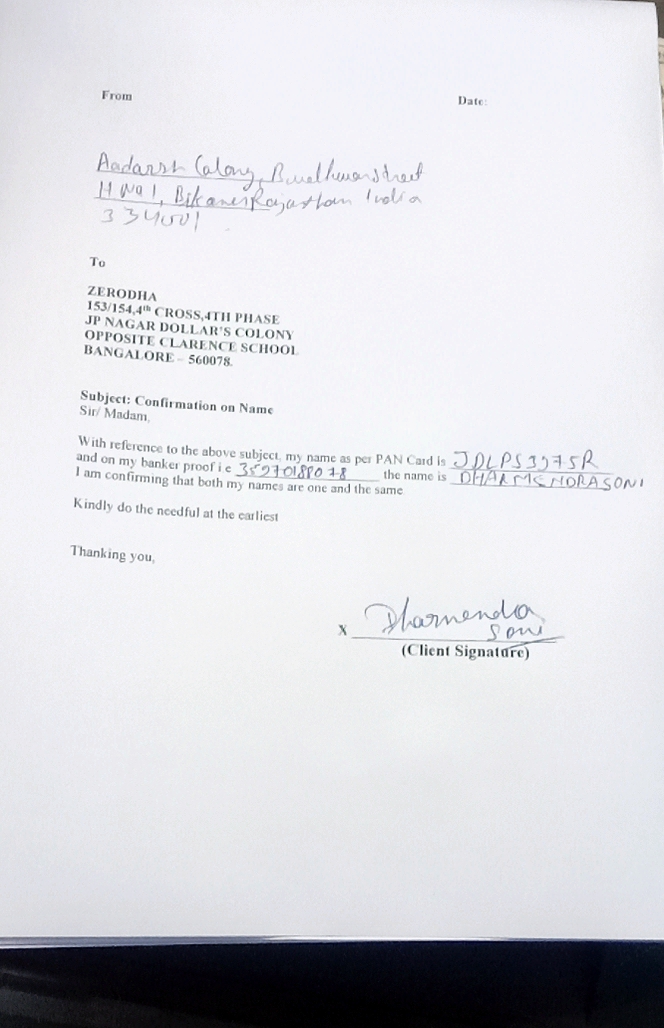 From
Date:
Aadarsh Colony, Street
H No 1, Bikaner Rajasthan India
334001
To
ZERODHA
153/154,4th CROSS,4TH PHASE
JP NAGAR DOLLAR'S COLONY
OPPOSITE CLARENCE SCHOOL
BANGALORE – 560078.
Subject: Confirmation on Name
Sir/ Madam,
With reference to the above subject, my name as per PAN Card is JDLPS3975R
and on my banker proof i e 35970188078 the name is DHARMENDRASONI
I am confirming that both my names are one and the same
Kindly do the needful at the earliest
Thanking you,
X Dharmendra
Soni
(Client Signature)